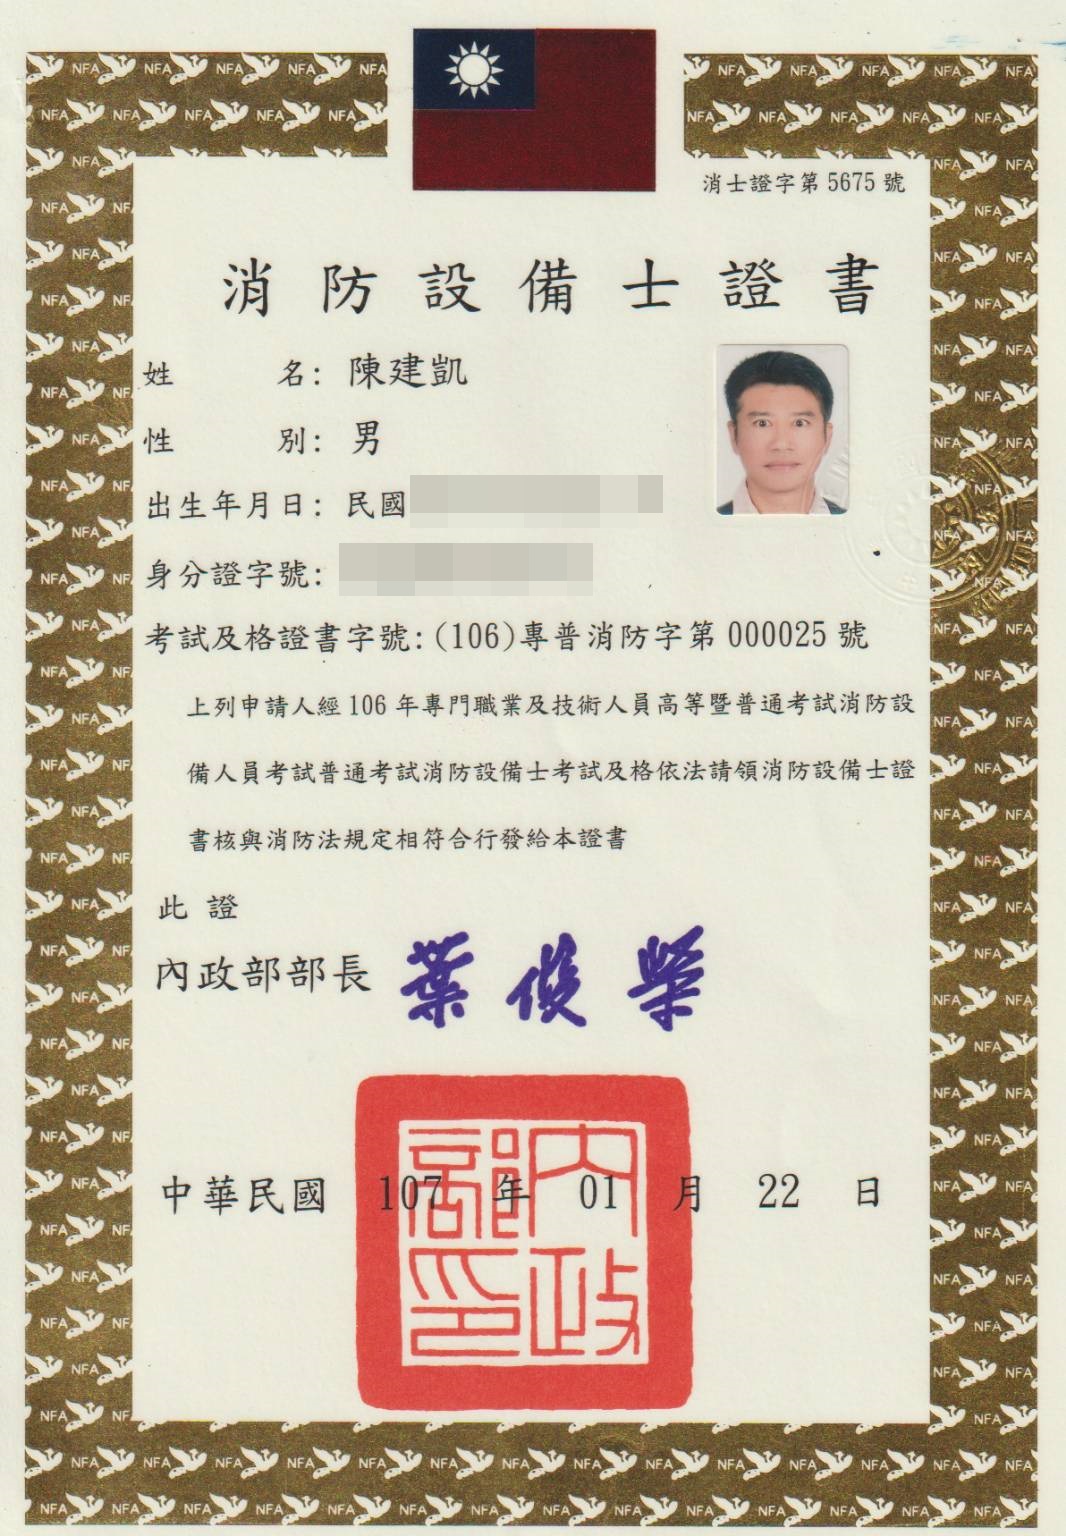 消士證字第 5675 號
消防設備士證書
姓 名: 陳建凱
性 別: 男
出生年月日: 民國
身分證字號:
考試及格證書字號: (106)專普消防字第 000025 號
上列申請人經 106 年專門職業及技術人員高等暨普通考試消防設
備人員考試普通考試消防設備士考試及格依法請領消防設備士證
書核與消防法規定相符合行發給本證書
此 證
內政部部長 葉俊榮
中華民國 107 年 01 月 22 日
內政
部印
NFA